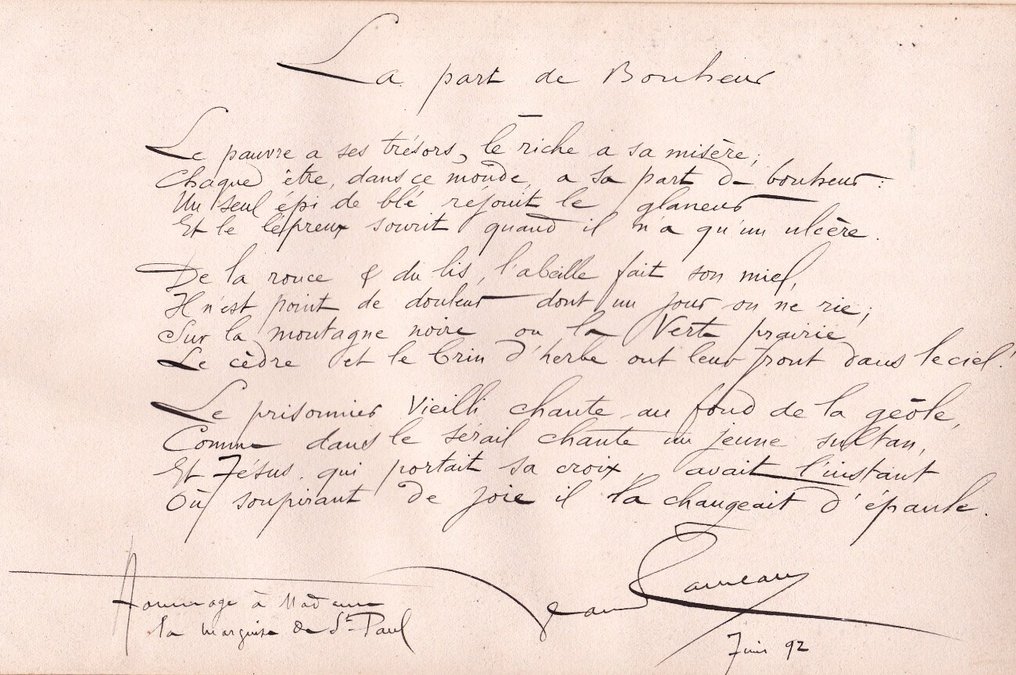 La part de Bonheur
Le pauvre a ses trésors, le riche a sa misère;
Chaque être, dans ce monde, a sa part de bonheur:
Un seul épi de blé réjouit le glaneur
Et le lépreux sourit quand il n'a qu'un ulcère.
De la ronce & du lis, l'abeille fait son miel,
Il n'est point de douleur dont un jour on ne rie;
Sur la montagne noire ou la Verte prairie
Le cèdre et le brin d'herbe ont leur front dans le ciel!
Le prisonnier Vieilli chante au fond de la geôle,
Comme dans le sérail chante un jeune sultan,
Et Jésus, qui portait sa croix, avait l'instant
Où soupirant de joie il la changeait d'épaule.
Jean Rameau
Hommage à Madame
la marquise de St Paul
Juin 92